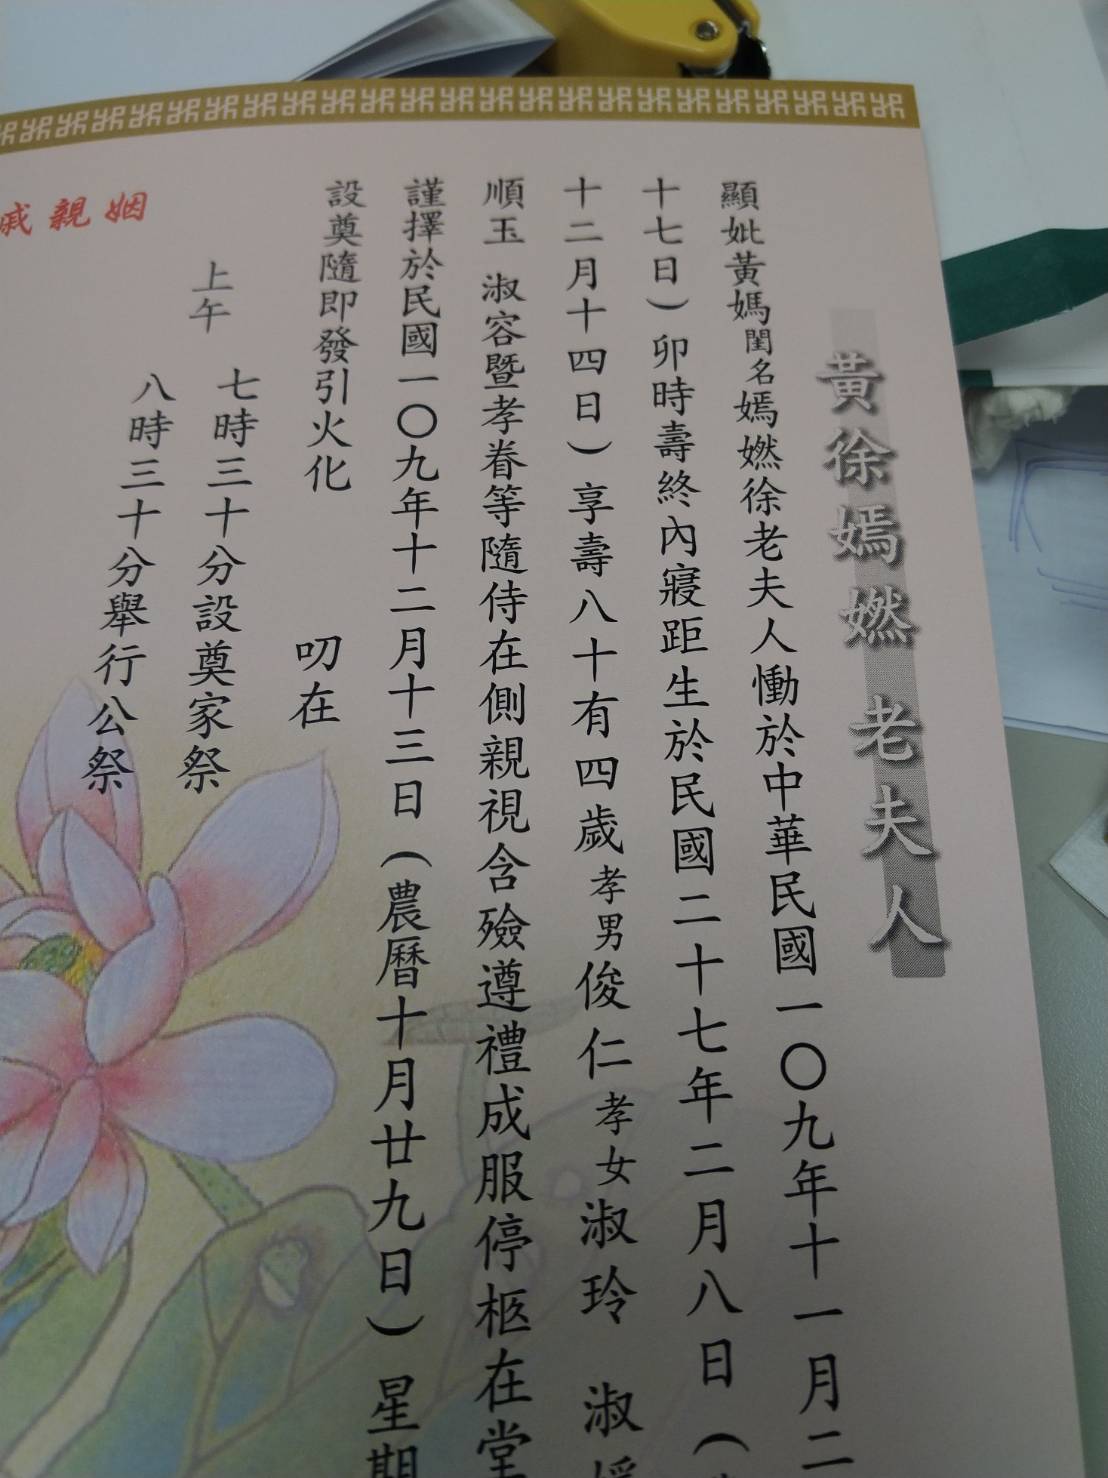 黃徐嫣嬔老夫人
顯妣黃媽閨名嫣嬔徐老夫人慟於中華民國一〇九年十一月二
十七日）卯時壽終內寢距生於民國二十七年二月八日（
十二月十四日）享壽八十有四歲孝男俊仁孝女淑玲 淑
順玉 淑容暨孝眷等隨侍在側親視含殮遵禮成服停柩在堂
謹擇於民國一〇九年十二月十三日（農曆十月廿九日）星期
設奠隨即發引火化 叨在
上午
七時三十分設奠家祭
八時三十分舉行公祭
姻親戚